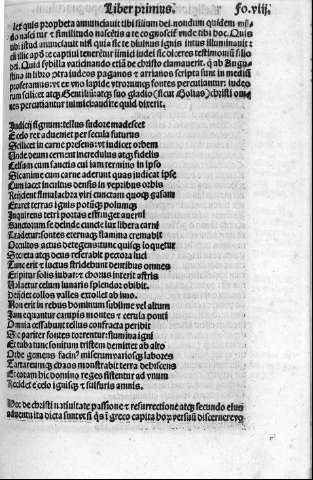 Liber primus. Fo. viij
let quis propheta annunciauit tibi filium dei. nondum quidem mū
do nasci tur et similitudo nascētis a te cognoscit̄ vnde tibi hoc. Quis
tibi istud annunciauit nisi quia sicte diuinus ignis intus illuminauit
Quid sibylla vaticinando etiā de christo clamauerit. q̄ ab Augu
stina in libro cōtra iudeos paganos et arrianos scripta sunt in mediū
proferamus: vt ex vno lapide vtrorumq̄ frontes percutiantur: iudeo
rum scilicet atq̄ Gentiliū: atq̄ suo gladio (sicut Golias) christi om
nes percutiantur inimici: audite quid dixerit.
Judicij signum: tellus sudore madescet
E celo rex adueniet per secula futurus
Scilicet in carne presens: vt iudicet orbem
Unde deum cernent incredulus atq̄ fidelis
Celsum cum sanctis eui iam termino in ipso
Sic anime cum carne aderunt quas iudicat ipse
Cum iacet incultus densis in vepribus orbis
Reijcient simulachra viri cunctam quoq̄ gasam
Exuret terras ignis pontūq̄ polumq̄
Inquirens tetri portas effringet auerni
Sanctorum sed enim cuncte lux libera carni
Tradetur: sontes eternaq̄ flamma cremabit
Occultos actus detegens tunc quisq̄ loquetur
Secreta atq̄ deus reserabit pectora luci
Tunc erit et luctus stridebunt dentibus omnes
Eripitur solis iubar: et chorus interit astris
Voluetur celum lunaris splendor obibit.
Deijciet colles valles extollet ab imo.
Non erit in rebus hominum sublime vel altum
Jam equantur campis montes et cerula ponti
Omnia cessabunt tellus confracta peribit
Sic pariter fontes torrentur: flumina igni
Et tuba tunc sonitum tristem demittet ab alto
Orbe gemens facin⁹ miserum variosq̄ labores
Tartareumq̄ chaos monstrabit terra dehiscens
Et coram hic domino reges sistentur ad vnum
Recidet e celo ignisq̄ et sulfuris amnis.
Hec de christi natiuitate passione et resurrectione atq̄ secundo eius
aduentu ita dicta sunt: vt si q̄s ī greco capita hoꝝ versuū discernere